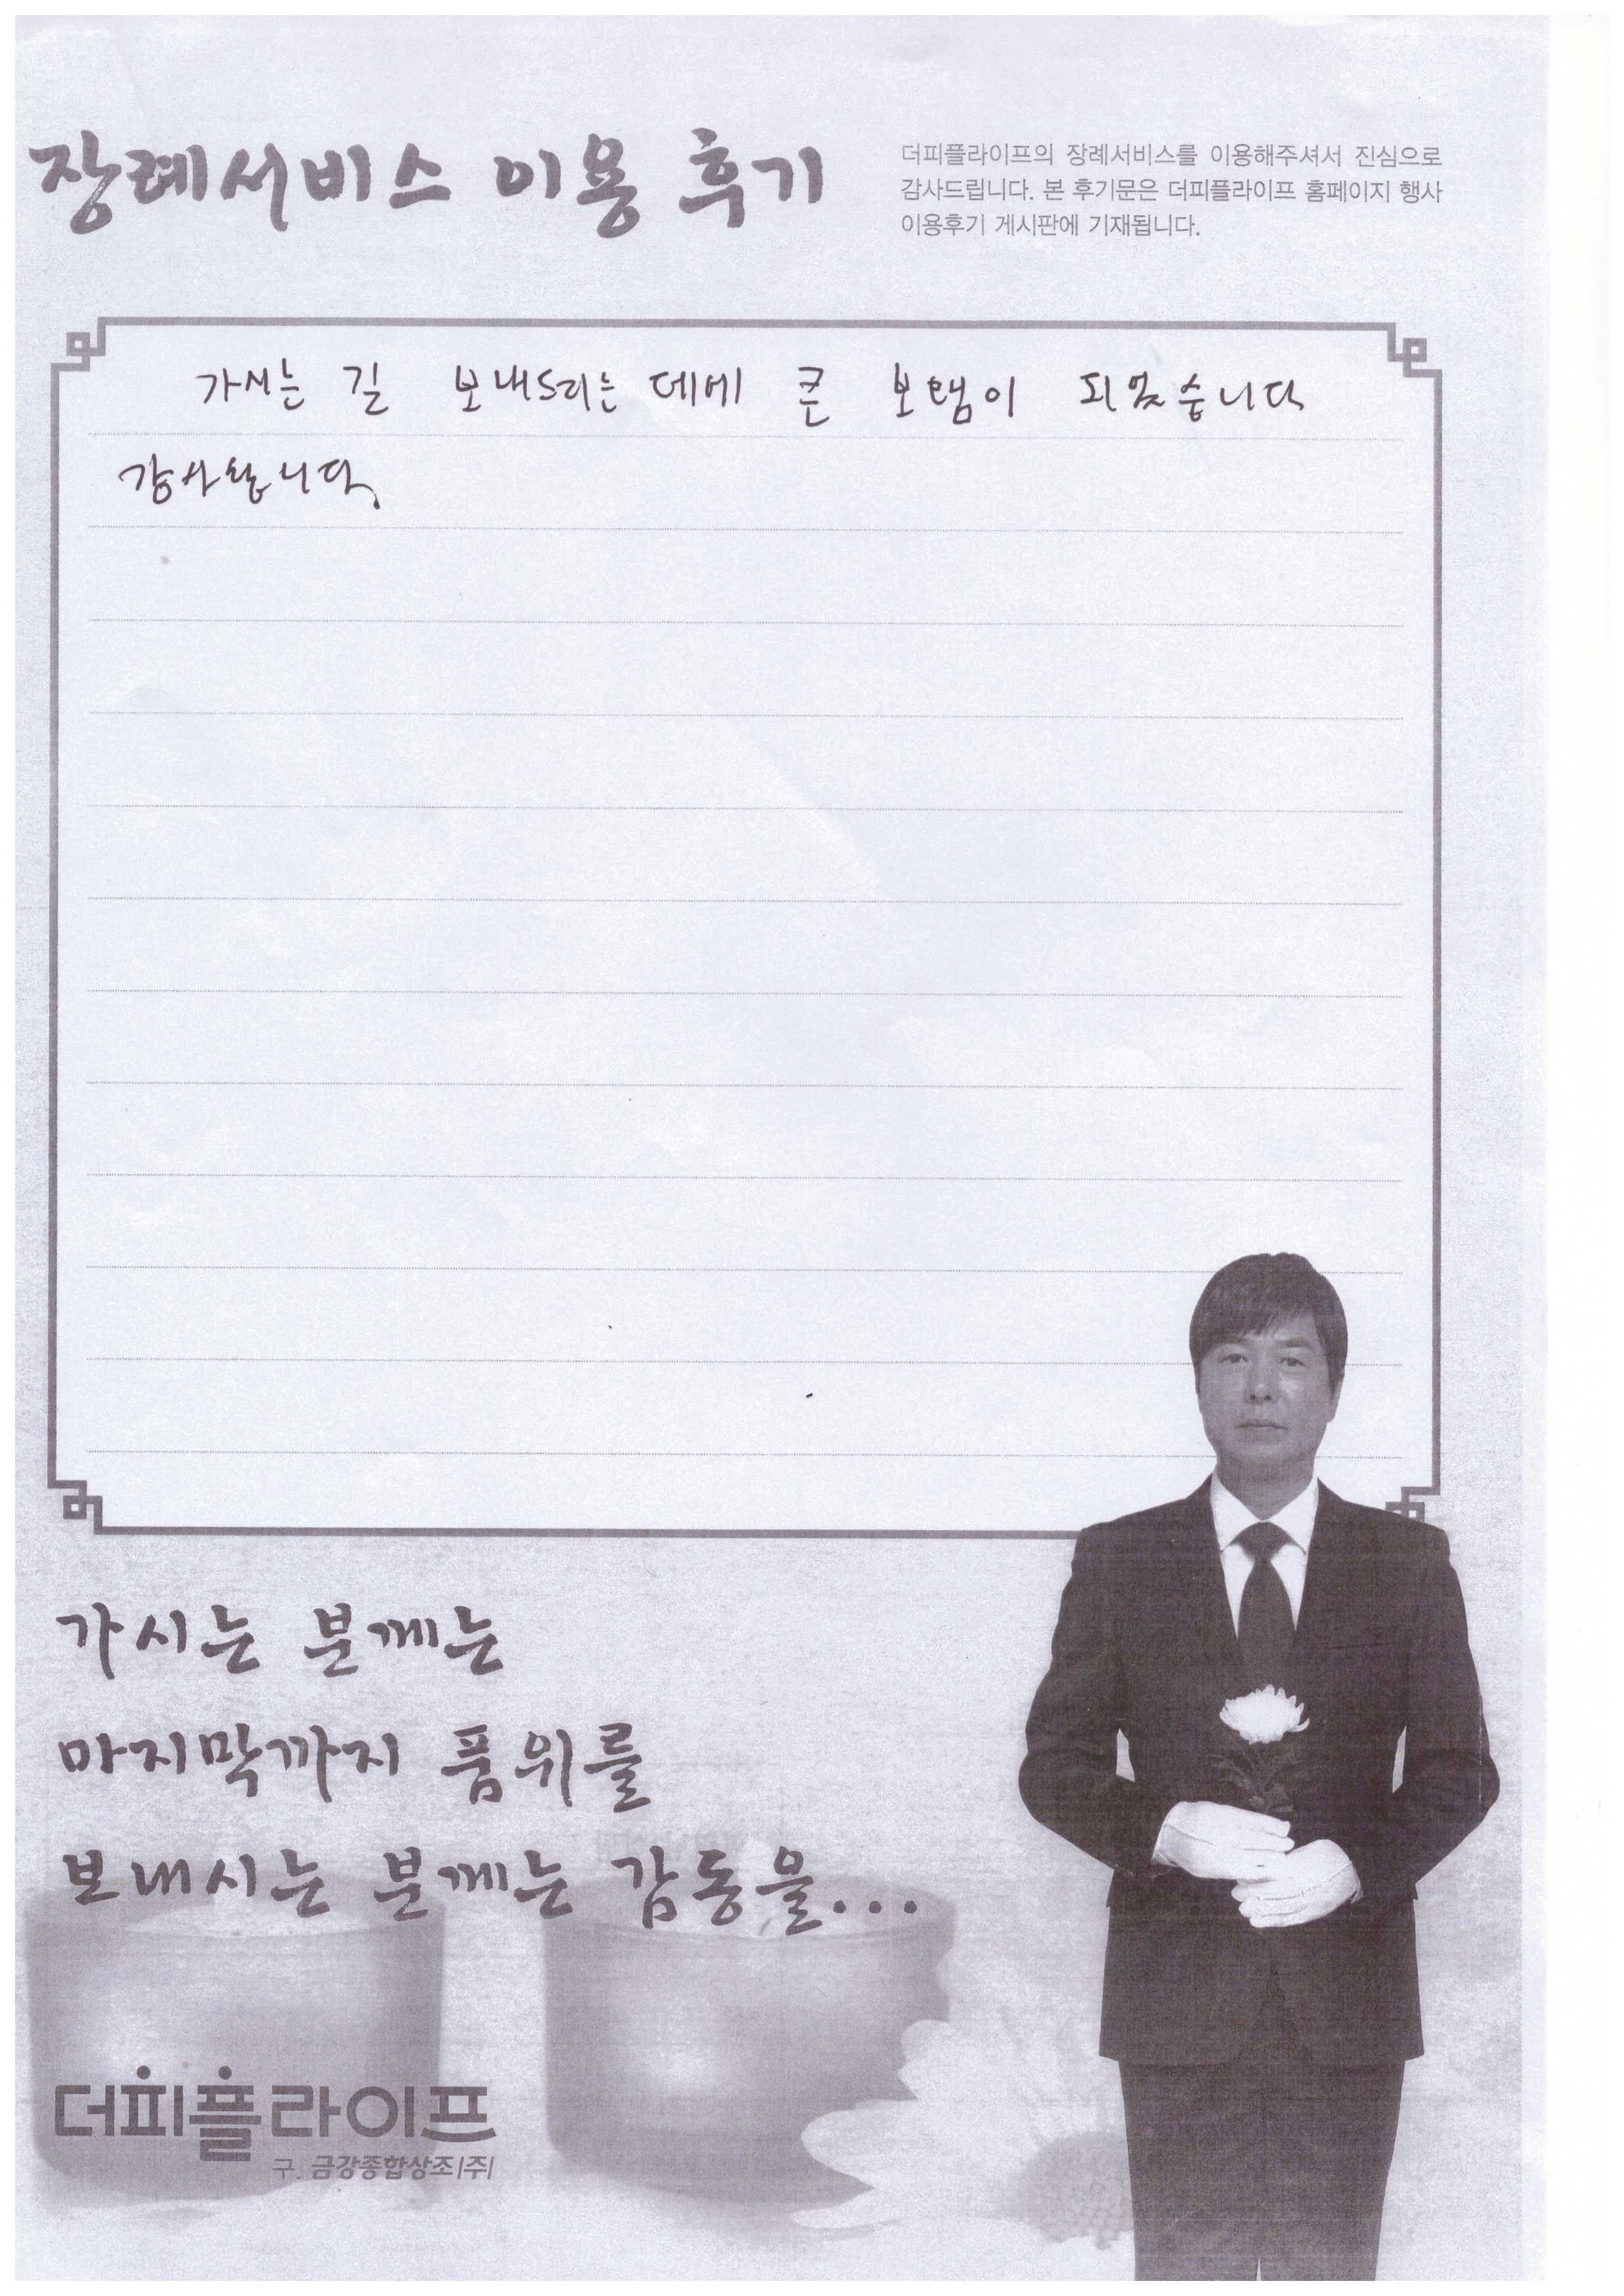 장례서비스 이용 후기
더피플라이프의 장례서비스를 이용해주셔서 진심으로
감사드립니다. 본 후기문은 더피플라이프 홈페이지 행사
이용후기 게시판에 기재됩니다.
가시는 길 보내드리는 데에 큰 보탬이 되었습니다
감사합니다.
가시는 분께는
마지막까지 품위를
보내시는 분께는 감동을...
더피플라이프
구. 금강종합상조|주|